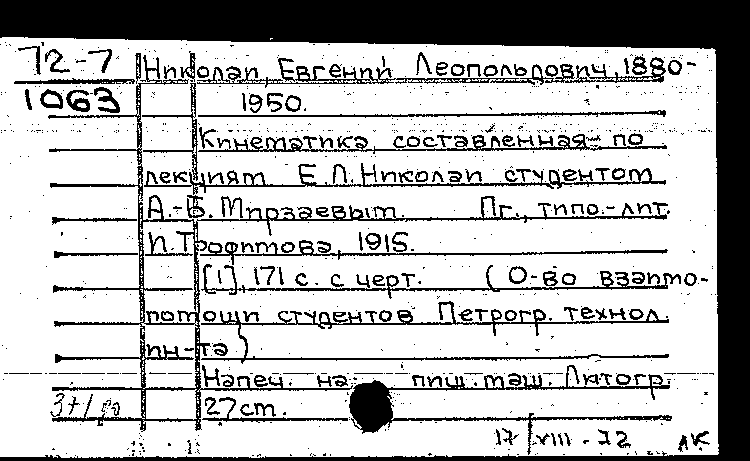 72-7 Николаи, Евгений Леопольдович, 1880-
1063 1950.
Кинематика, составленная по
лекциям Е.Л.Николаи студентом
А.-Б. Мирзаевым. Пг., типо.-лит.
И.Трофимова, 1915.
[1], 171 с. с черт. (О-во взаимо-
помощи студентов Петрогр. технол.
ин-та).
Напеч. на пиш.маш. Литогр.
27см.
17 VIII - 72 АК